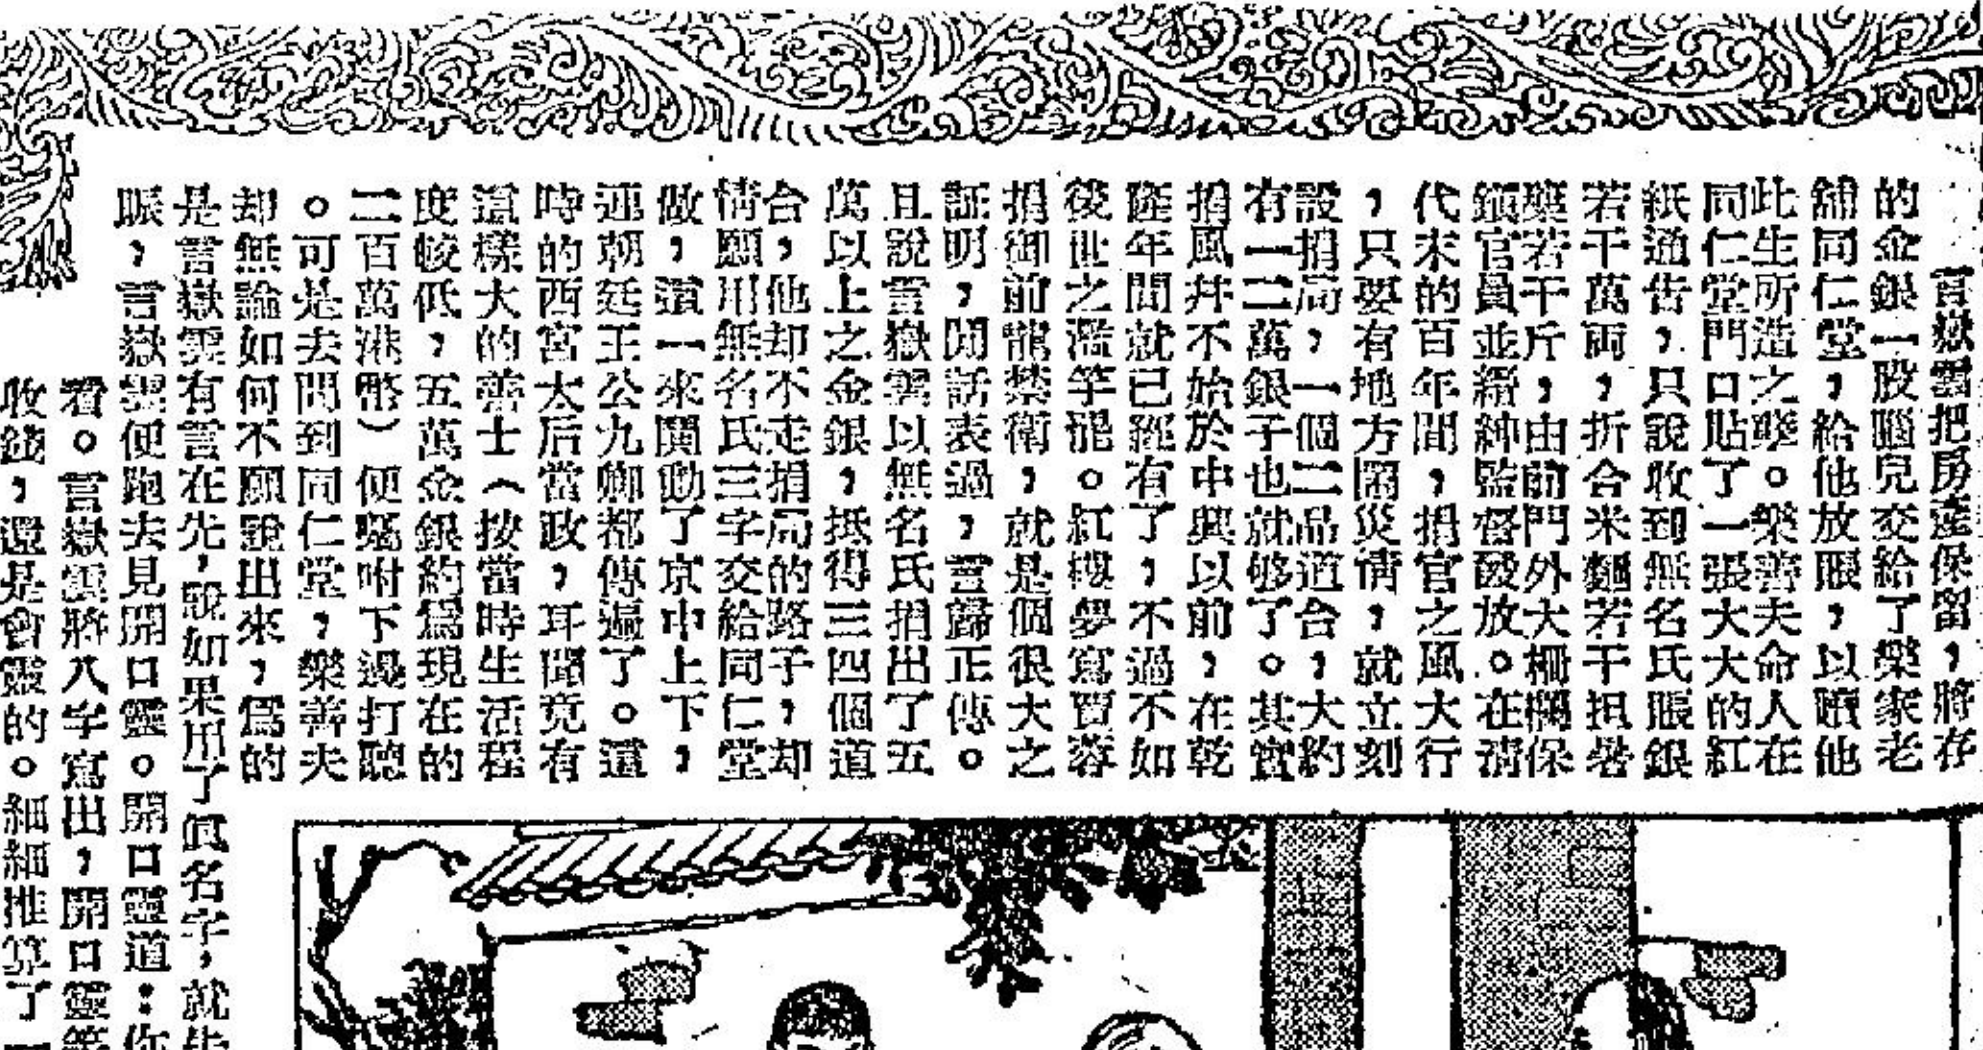 言嶽雲把房產保留，將存
的金銀一股腦兒交給了樂家老
舖同仁堂，給他放賑，以贖他
此生所造之孽。樂善夫命人在
同仁堂門口貼了一張大大的紅
紙通告，只說收到無名氏賑銀
若干萬両，折合米麵若干担礜
藥若干斤，由前門外大柵欄保
鑛官員並縉紳監督醱放。在清
代末的百年間，捐官之風大行
，只要有地方鬧災情，就立刻
設捐局，一個二品道台，大約
有一二萬銀子也就够了。其實
捐風幷不始於中興以前，在乾
隆年間就已經有了，不過不如
後世之濫竽罷。紅樓夢寫賈蓉
捐御前龍禁衛，就是個很大之
証明，閒話表過，言歸正傳。
且說言嶽雲以無名氏捐出了五
萬以上之金銀，抵得三四個道
台，他却不走捐局的路子，却
情願用無名氏三字交給同仁堂
做，這一來鬨動了京中上下，
連朝廷王公九卿都傳遍了。這
時的西宮太后當政，耳聞竟有
這樣大的善士（按當時生活程
度較低，五萬金銀約爲現在的
二百萬港幣）便囑咐下邊打聽
。可是去問到同仁堂，樂善夫
却無論如何不願說出來，爲的
是言嶽雲有言在先，說如果用了眞名字，就失
賑，言嶽雲便跑去見開口靈。開口靈道：你
看。言嶽雲將八字寫出，開口靈筭
收錢，還是會靈的。細細推算了一